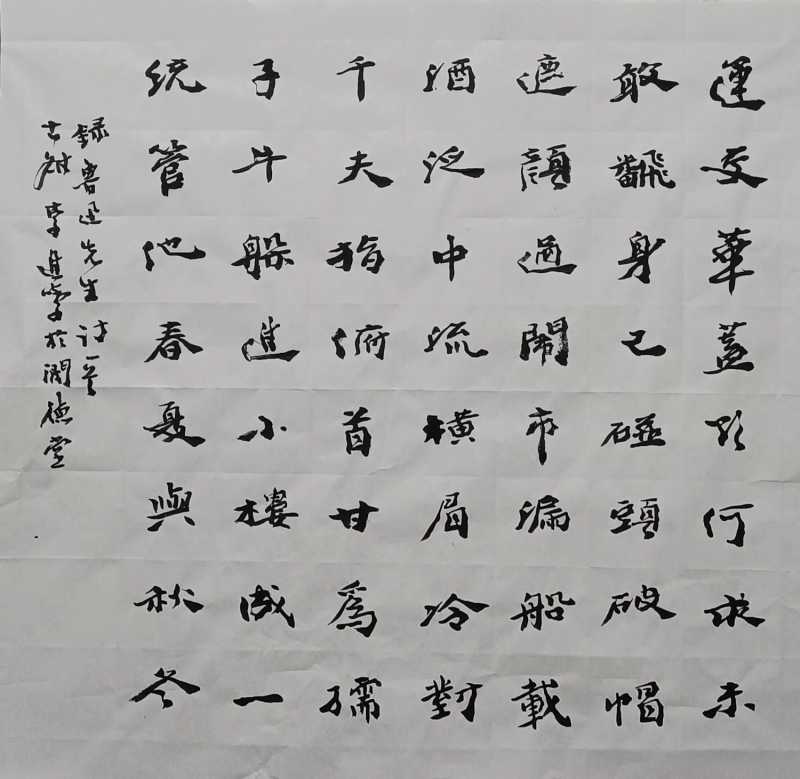 運交華蓋欲何求未
敢飜身已碰頭破帽
遮顏過鬧市漏船載
酒泛中流橫眉冷對
千夫指俯首甘爲孺
子牛躲進小樓成一
統管他春夏與秋冬
錄魯迅先生詩一首
古李進學於潤德堂